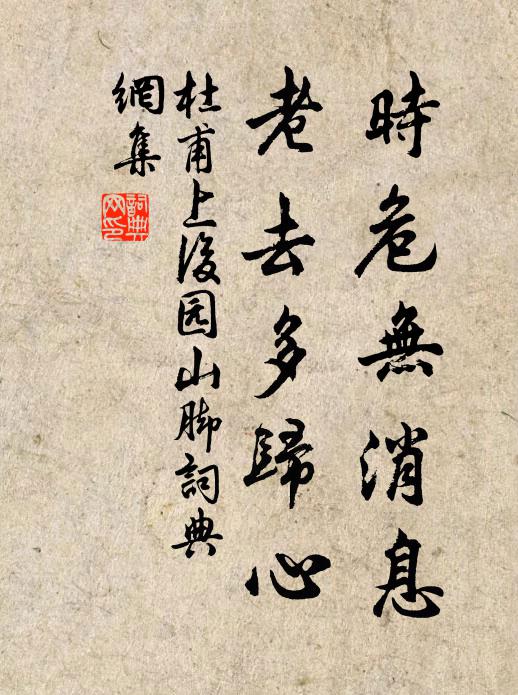 時危無消息
老去多歸心
杜甫上後园山脚詞典
網集
詞典
网印